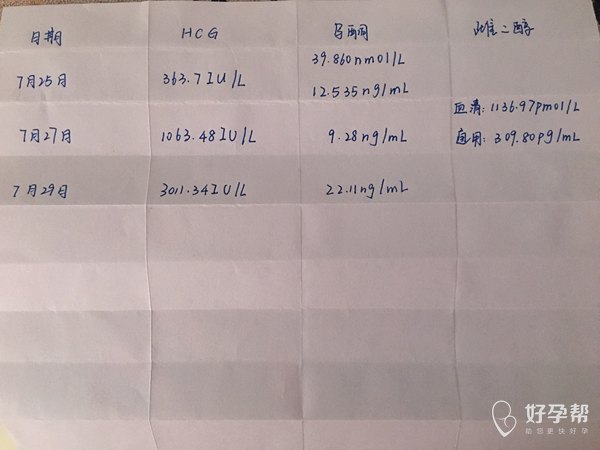 日期 HCG 孕酮 雌二醇
39.860nmol/L
7月25日 363.7IU/L
12.535ng/mL
血清: 1136.97pmol/L
7月27日 1063.48IU/L 9.28ng/mL 直用: 309.80pg/mL
7月29日 3011.34IU/L 22.11ng/mL
好孕帮
助您更快好孕